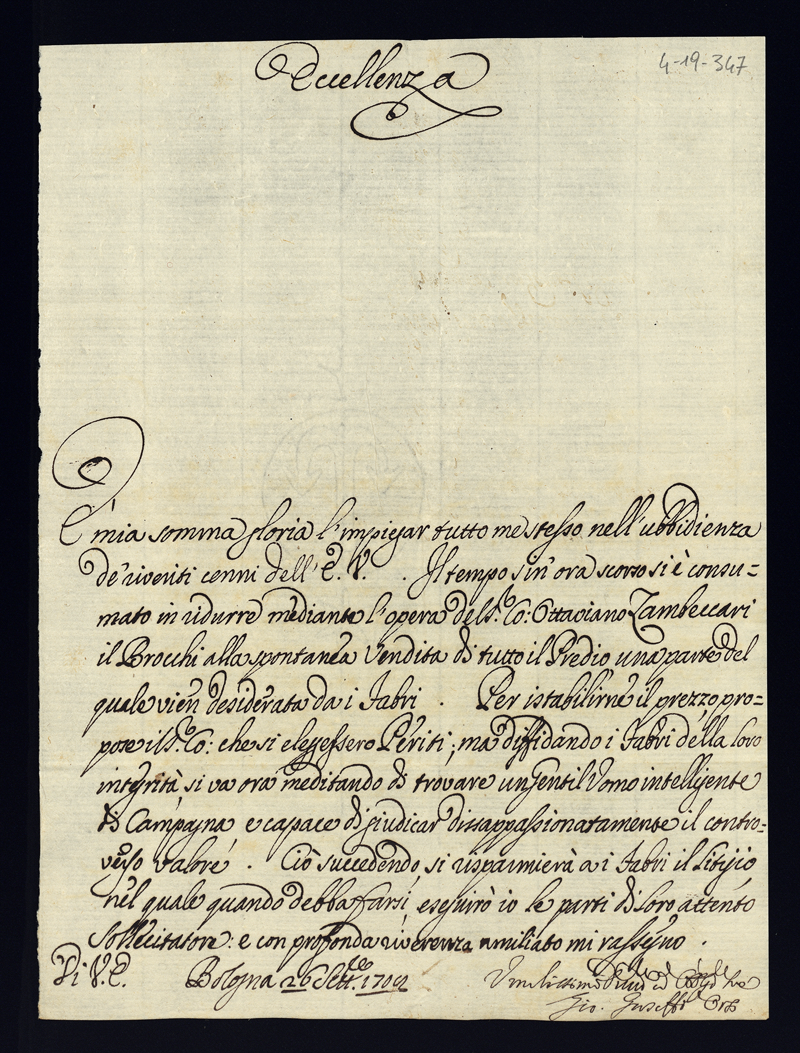 4-19-347
Eccellenza
E' mia somma gloria l'impiegar tutto me stesso nell'ubbidienza
de' riveriti cenni dell'E. V. . Il tempo sin' ora scorso si è consu=
mato in ridurre mediante l'opera del Sr. Co: Ottaviano Zambeccari
il Brocchi alla spontanea Vendita di tutto il Predio una parte del
quale vien desiderata da i Fabri . Per istabilirne il prezzo pro=
pose il Sr. Co: che si eleggessero Periti, ma diffidando i Fabri della loro
integrità si va ora meditando di trovare un Gentil Uomo intelligente
di Campagna e capace di giudicar dissappassionatamente il contro=
verso valore . Ciò succedendo si risparmierà a i Fabri il Litigio
nel quale quando debba farsi, eseguirò io le parti di loro attento
Sollecitatore: e con profonda riverenza umiliato mi rassegno .
Di V. E. Bologna 26 Sett.
Gio. Gioseffo